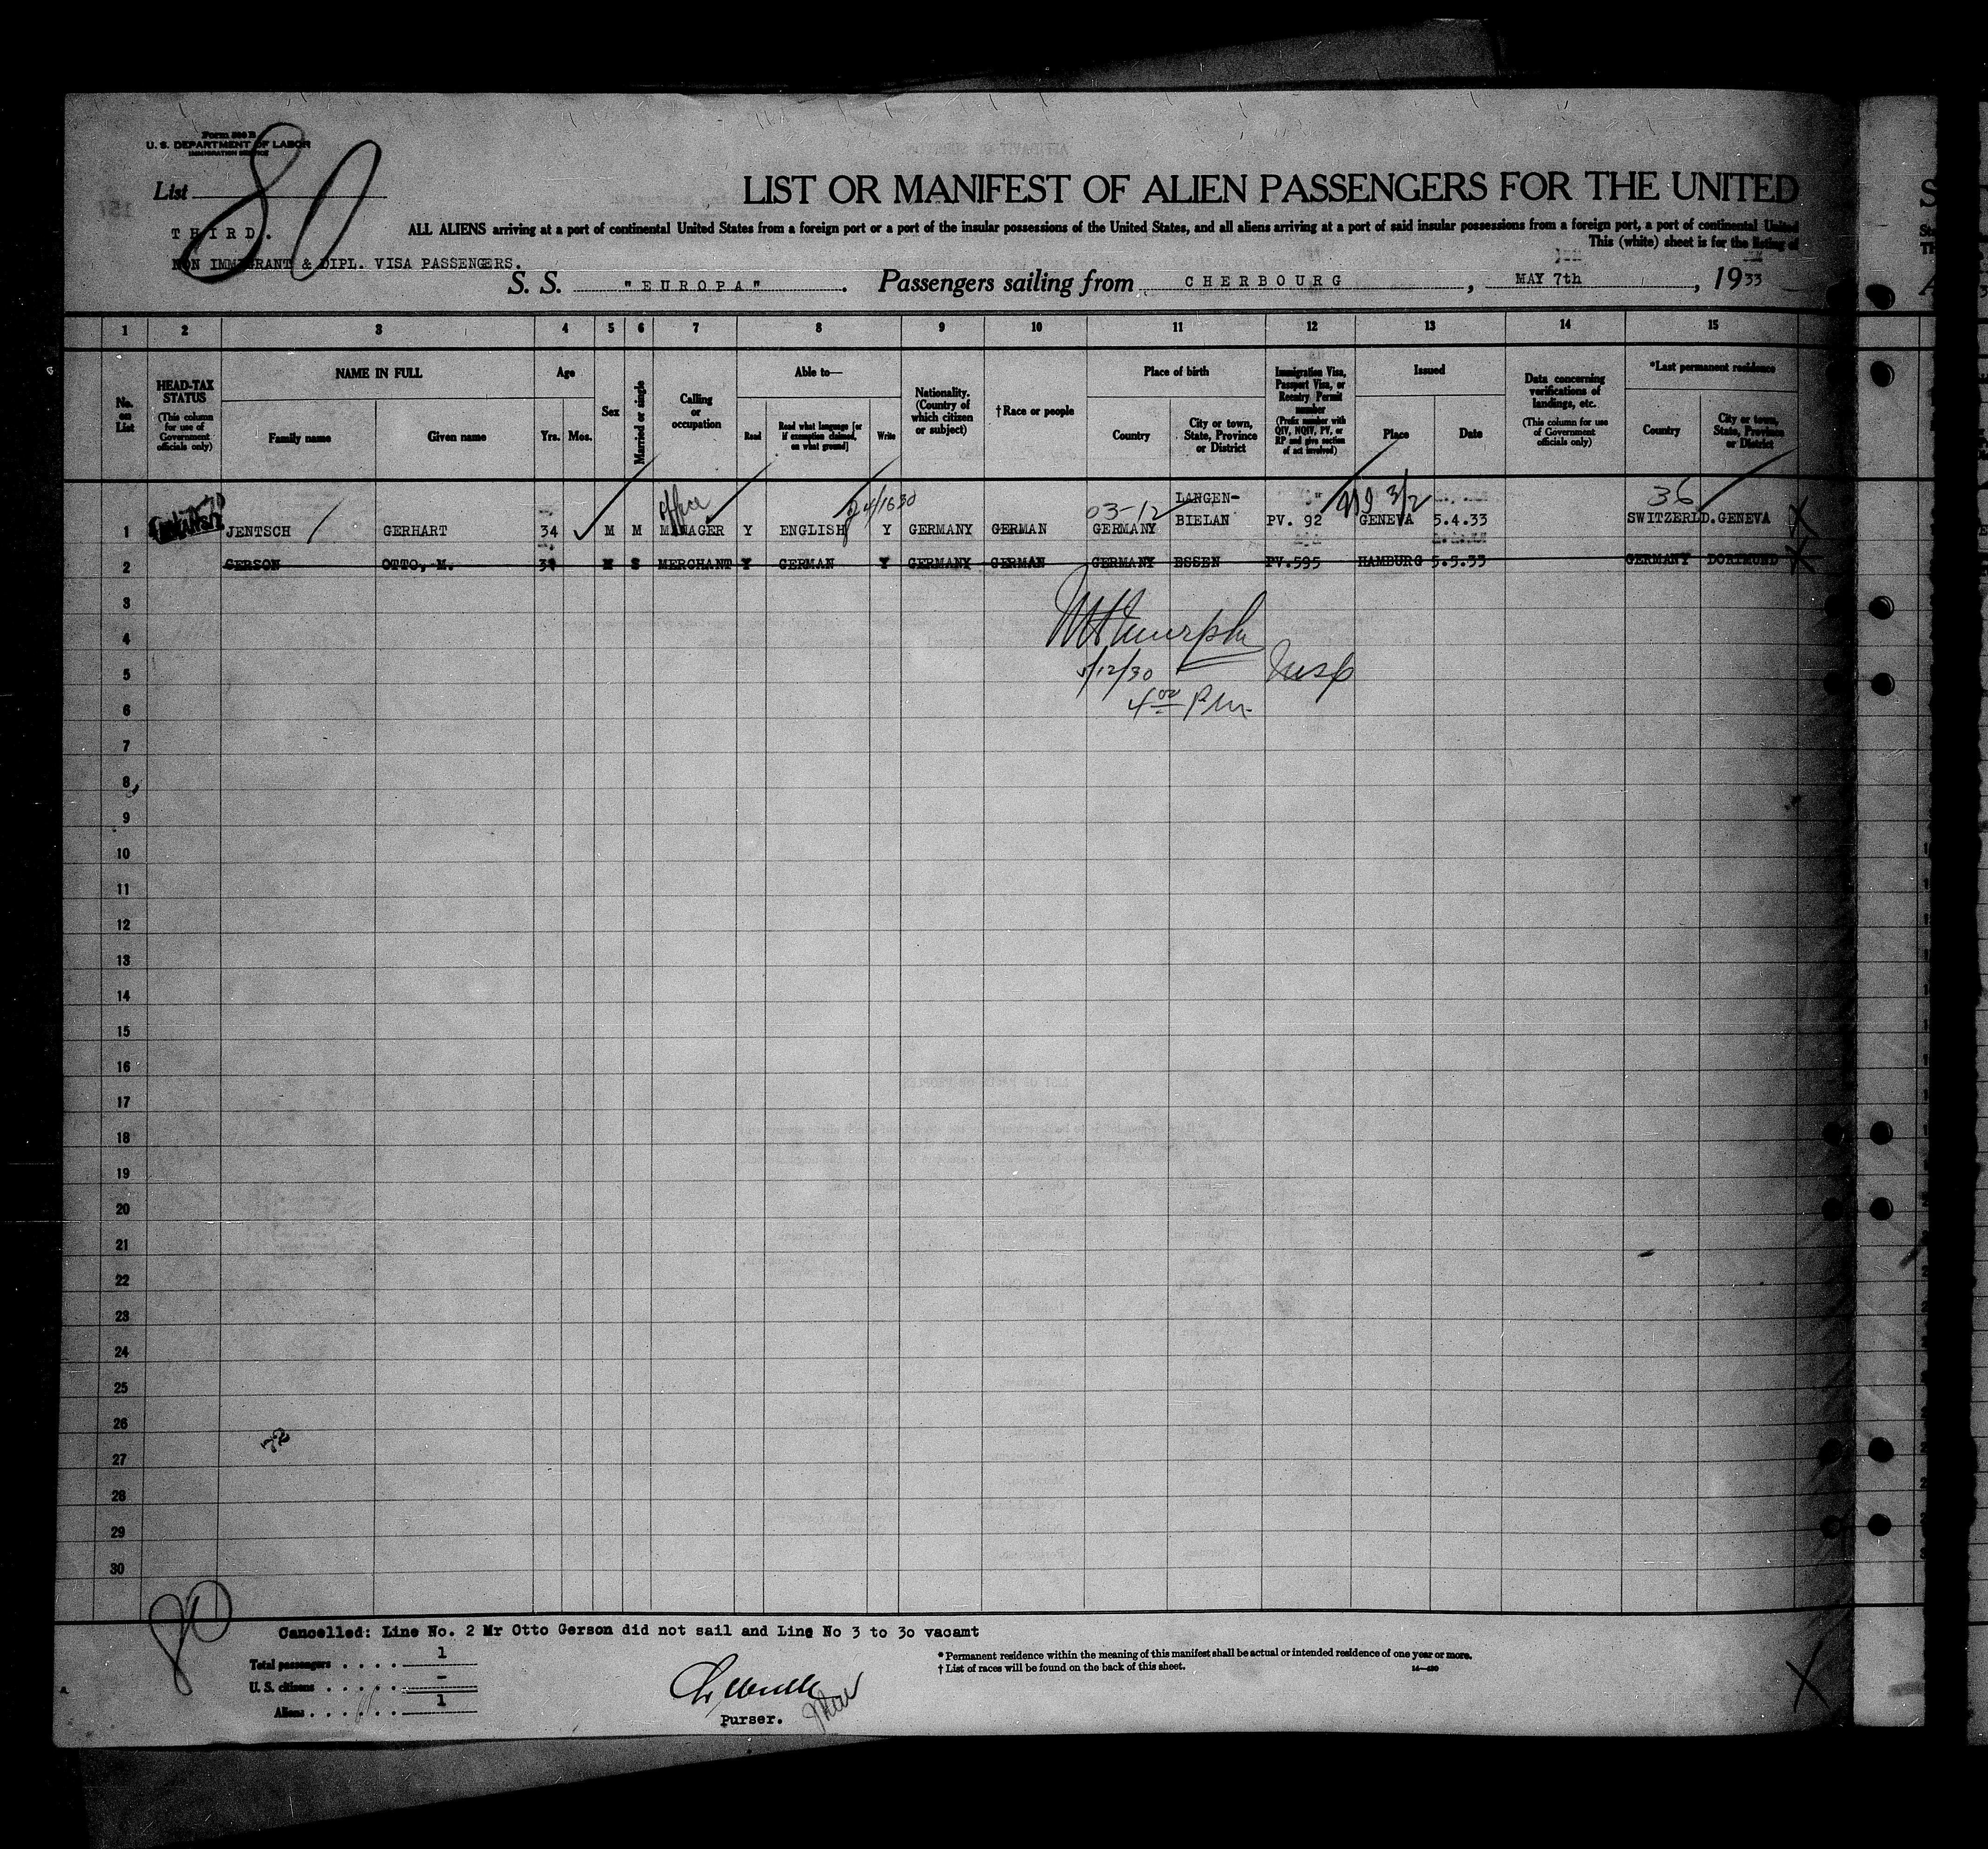 Form 500 B
U. S. DEPARTMENT OF LABOR
IMMIGRATION SERVICE
List 80
THIRD.
NON IMMIGRANT & DIPL. VISA PASSENGERS.
LIST OR MANIFEST OF ALIEN PASSENGERS FOR THE UNITED
ALL ALIENS arriving at a port of continental United States from a foreign port or a port of the insular possessions of the United States, and all aliens arriving at a port of said insular possessions from a foreign port, a port of continental United
This (white) sheet is for the listing of
S. S. "EUROPA". Passengers sailing from CHERBOURG, MAY 7th, 1933
1 2 3 4 5 6 7 8 9 10 11 12 13 14 15
No. on List
HEAD-TAX STATUS
(This column for use of Government officials only)
NAME IN FULL
Family name
Given name
Age
Yrs. Mos.
Sex
Married or single
Calling or occupation
Able to—
Read
Read what language [or if exemption claimed, on what ground]
Write
Nationality. (Country of which citizen or subject)
†Race or people
Place of birth
Country
City or town, State, Province or District
Immigration Visa, Passport Visa, or Reentry Permit number
(Prefix number with QIV, NQIV, PV, or RP and give section of act involved)
Issued
Place
Date
Data concerning verifications of landings, etc.
(This column for use of Government officials only)
*Last permanent residence
Country
City or town, State, Province or District
office 03-12 3/2 36
1 JENTSCH GERHART 34 M M MANAGER Y ENGLISH Y GERMANY GERMAN GERMANY LANGEN-BIELAN PV. 92 GENEVA 5.4.33 SWITZERLD. GENEVA X
2 GERSON OTTO, M. M S MERCHANT Y GERMAN Y GERMANY GERMAN GERMANY ESSEN PV.595 HAMBURG 5.5.33 GERMANY DORTMUND X
3
4
5
5/12/30 Insp
6
4 00 Pm
7
8
9
10
11
12
13
14
15
16
17
18
19
20
21
22
23
24
25
26
27
28
29
30
80
Cancelled: Line No. 2 Mr Otto Gerson did not sail and Line No 3 to 30 vacamt
Total passengers . . . . 1
U. S. citizens . . . . . –
Aliens . . . . . . 1
Purser.
* Permanent residence within the meaning of this manifest shall be actual or intended residence of one year or more.
† List of races will be found on the back of this sheet.
X